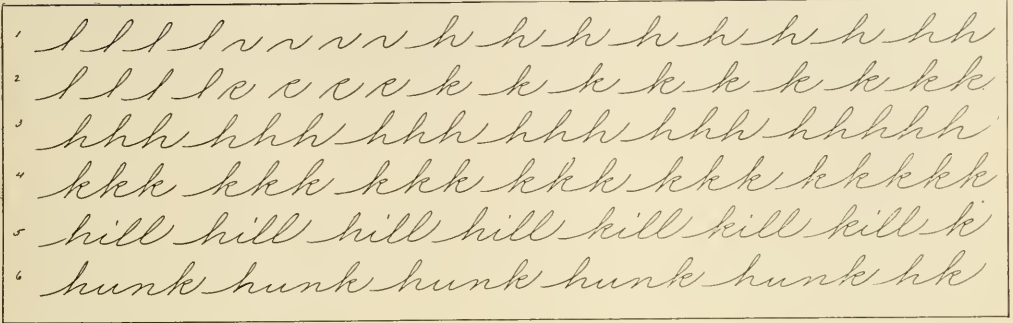 1 l l l l h h h h h h h hh
2 l l l l k k k k k k k kk
3 hhh hhh hhh hhh hhh hhhhh
4 kkk kkk kkk kkk kkk kkkkk
5 hill hill hill hill kill kill kill k
6 hunk hunk hunk hunk hunk hk